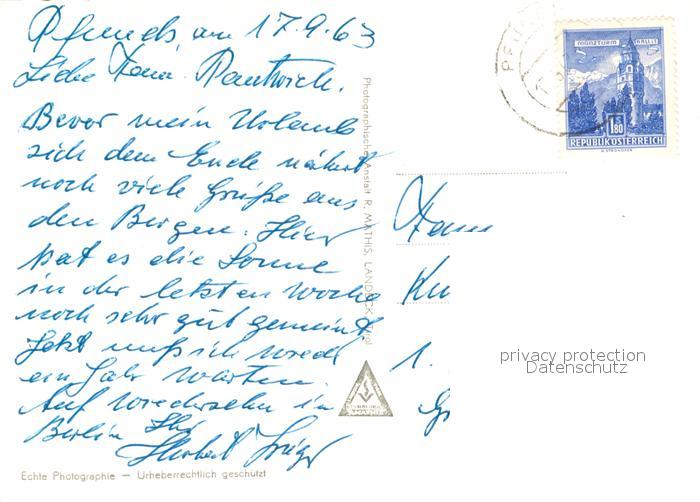 Pfunds, am 17.9.63
Liebe Frau
Bevor mein Urlaub
sich dem Ende nähert
noch viele Grüße aus
den Bergen. Hier
hat es die Sonne
in der letzten Woche
noch sehr gut gemeint.
Jetzt muß ich wieder
ein Jahr warten.
Auf Wiedersehn in
Berlin Ihr
Herbert
Echte Photographie — Urheberrechtlich geschützt
Photographische Anstalt R. MATHIS, LANDECK, Tirol
MÜNZTURM HALL I.T.
S 1.80
REPUBLIK ÖSTERREICH
PFUN
Frau
1.
privacy protection
Datenschutz